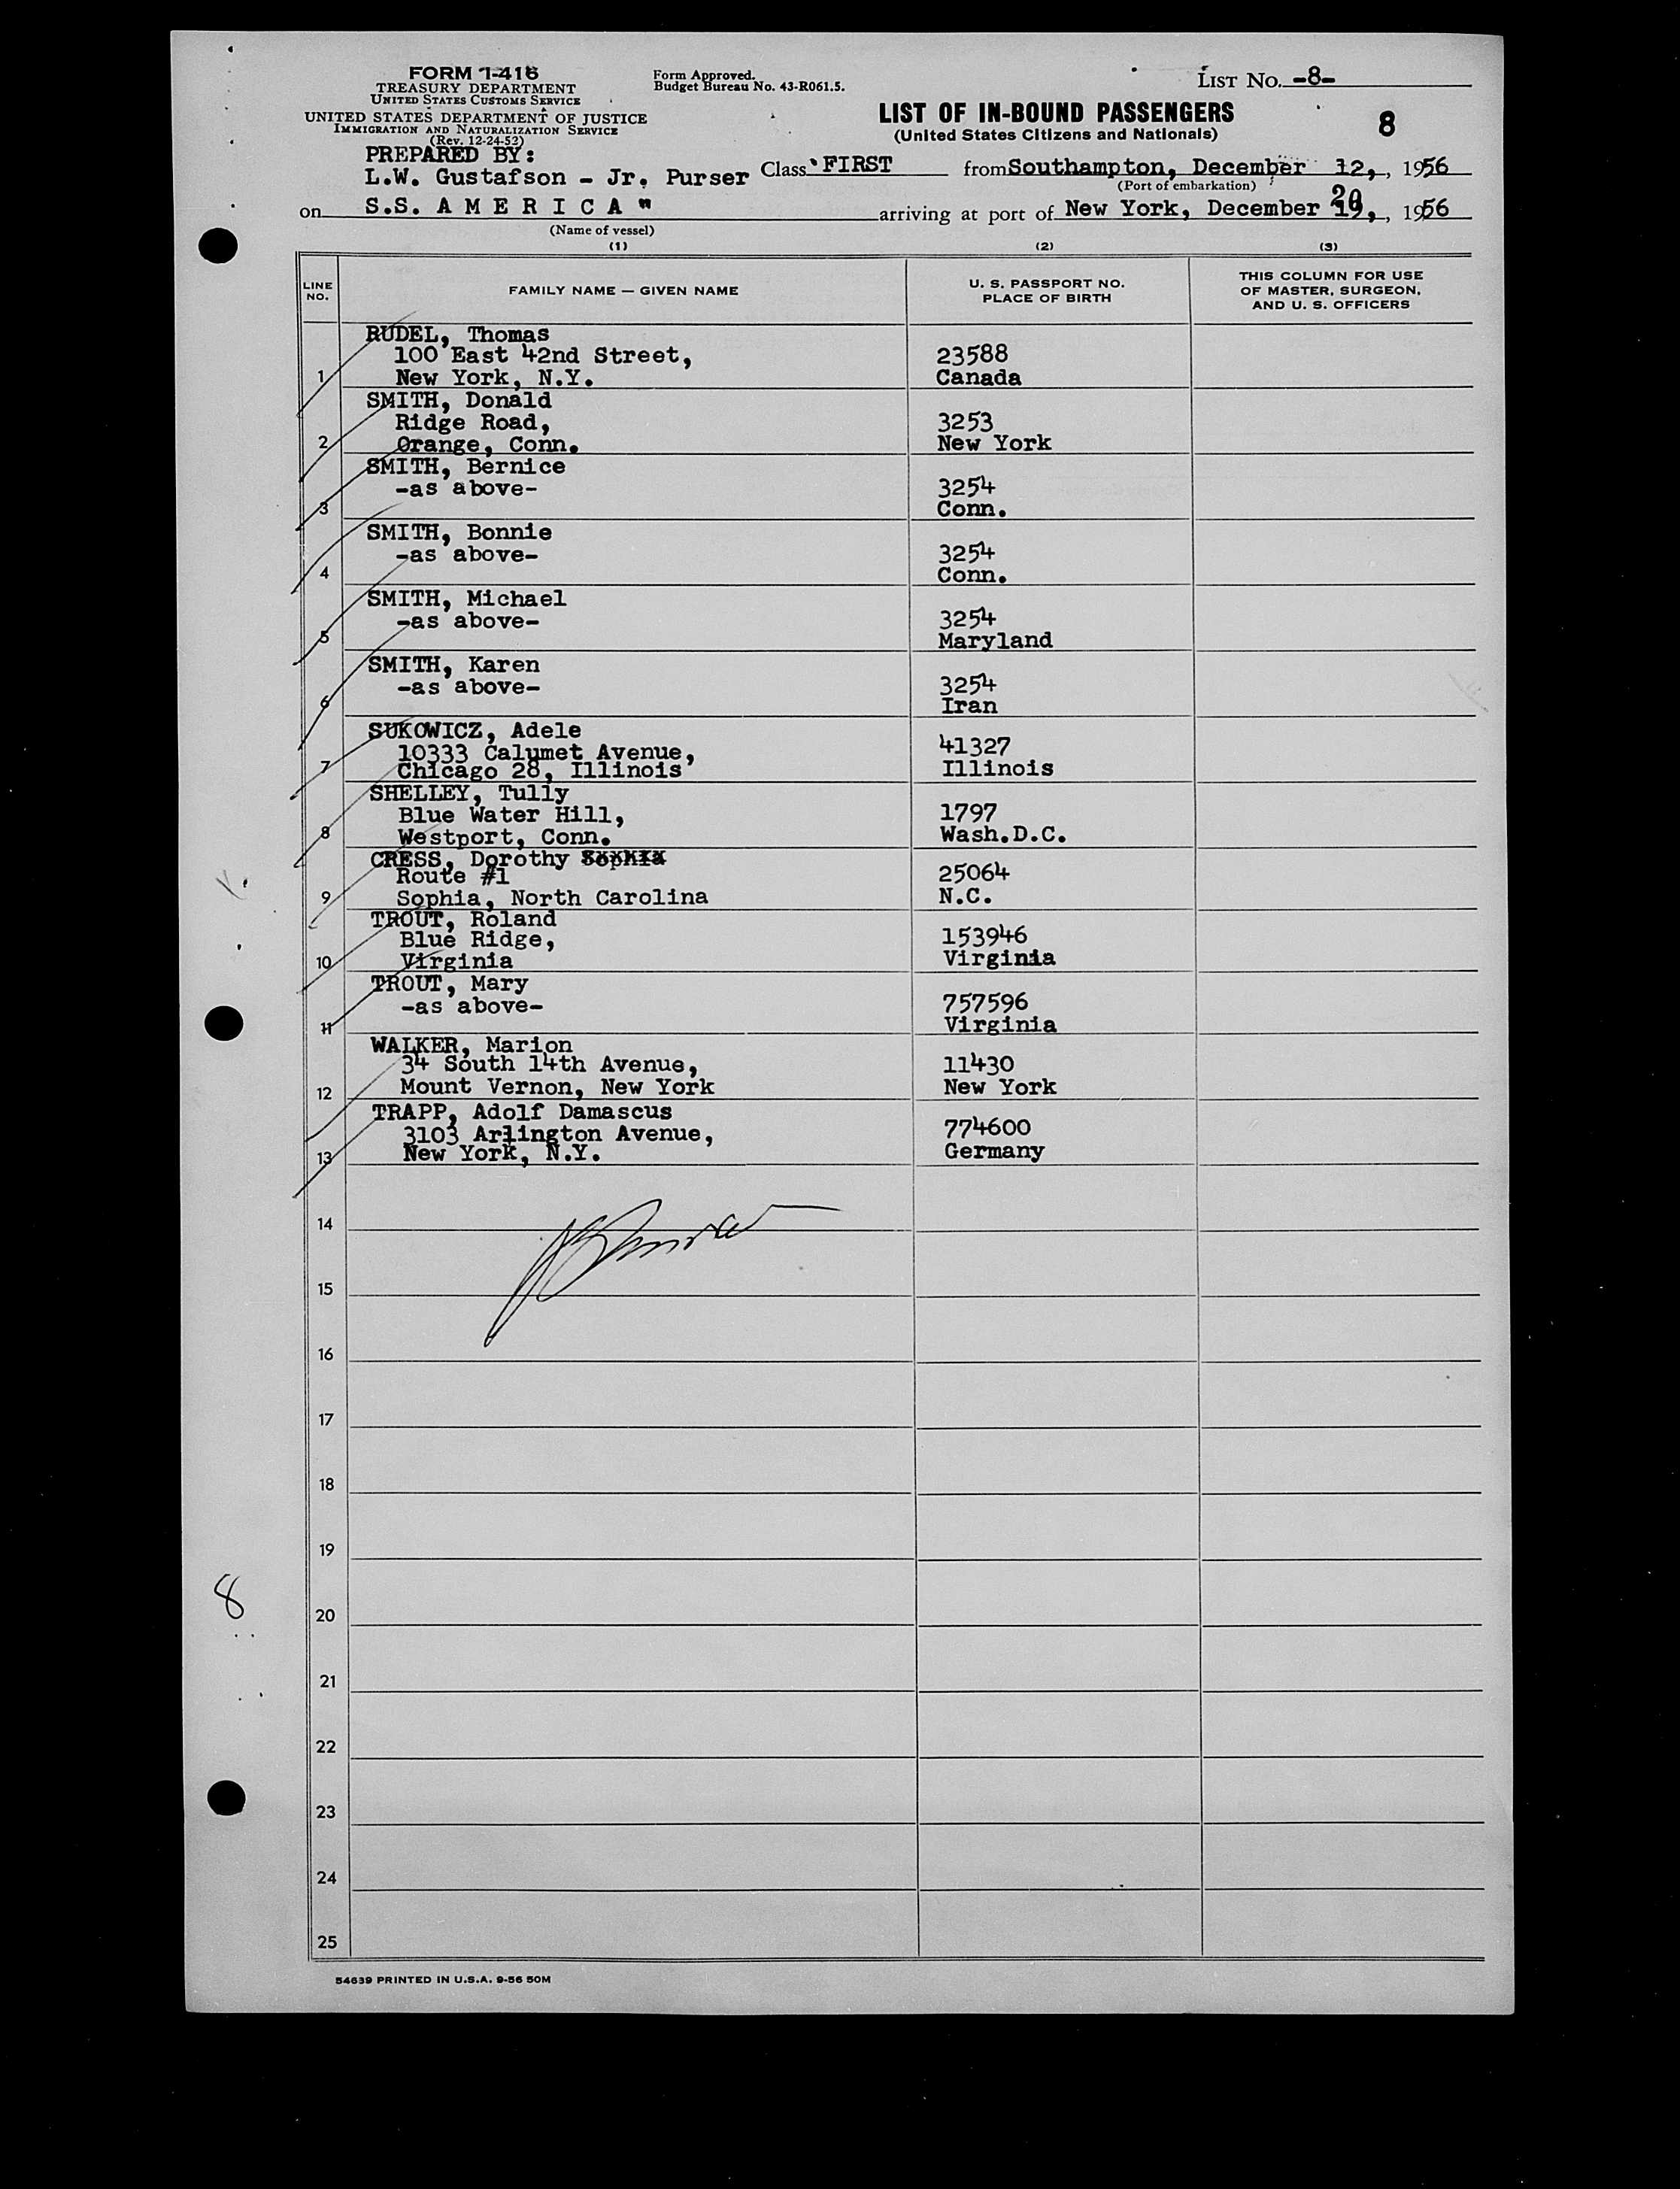 FORM I-416
TREASURY DEPARTMENT
UNITED STATES CUSTOMS SERVICE
UNITED STATES DEPARTMENT OF JUSTICE
IMMIGRATION AND NATURALIZATION SERVICE
(Rev. 12-24-52)
Form Approved.
Budget Bureau No. 43-R061.5.
LIST NO. -8-
LIST OF IN-BOUND PASSENGERS
(United States Citizens and Nationals)
8
PREPARED BY:
L.W. Gustafson - Jr. Purser
Class FIRST from Southampton, December 12, , 1956
(Port of embarkation)
on S.S. A M E R I C A " arriving at port of New York, December 20, , 1956
(Name of vessel)
(1) (2) (3)
LINE NO. FAMILY NAME — GIVEN NAME U. S. PASSPORT NO. PLACE OF BIRTH THIS COLUMN FOR USE OF MASTER, SURGEON, AND U. S. OFFICERS
RUDEL, Thomas
100 East 42nd Street, 23588
1 New York, N.Y. Canada
SMITH, Donald
Ridge Road, 3253
2 Orange, Conn. New York
SMITH, Bernice
-as above- 3254
3 Conn.
SMITH, Bonnie
-as above- 3254
4 Conn.
SMITH, Michael
-as above- 3254
5 Maryland
SMITH, Karen
-as above- 3254
6 Iran
SUKOWICZ, Adele
10333 Calumet Avenue, 41327
7 Chicago 28, Illinois Illinois
SHELLEY, Tully
Blue Water Hill, 1797
8 Westport, Conn. Wash.D.C.
CRESS, Dorothy Sophia
Route #1 25064
9 Sophia, North Carolina N.C.
TROUT, Roland
Blue Ridge, 153946
10 Virginia Virginia
TROUT, Mary
-as above- 757596
11 Virginia
WALKER, Marion
34 South 14th Avenue, 11430
12 Mount Vernon, New York New York
TRAPP, Adolf Damascus
3103 Arlington Avenue, 774600
13 New York, N.Y. Germany
14
15
16
17
18
19
8
20
21
22
23
24
25
54639 PRINTED IN U.S.A. 9-56 50M